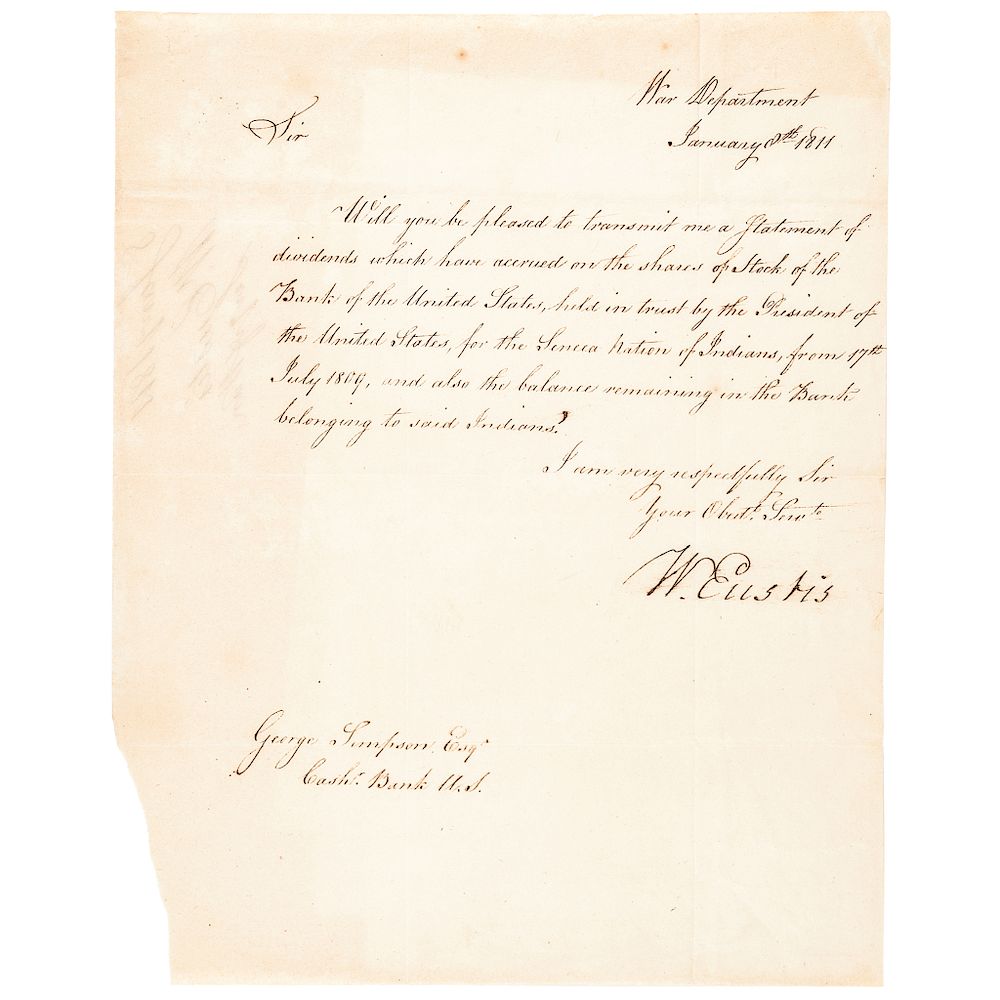 War Department
January 8th 1811
Sir
Will you be pleased to transmit me a Statement of
dividends which have accrued on the shares of Stock of the
Bank of the United States, held in trust by the President of
the United States, for the Seneca Nation of Indians, from 17th
July 1809, and also the balance remaining in the Bank
belonging to said Indians?
I am very respectfully Sir
Your Obedt. Servt.
W. Eustis
George Simpson, Esqr
Cashr. Bank U.S.